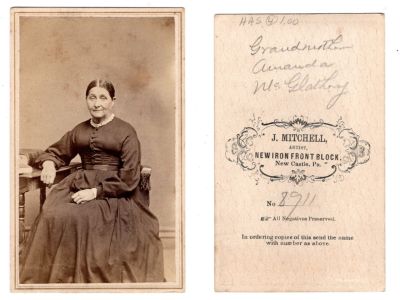 HAS @ 1.00
Grandmother
Amanda
Mc Glathry
J. MITCHELL,
ARTIST,
NEW IRON FRONT BLOCK,
New Castle, Pa.
No 8911
All Negatives Preserved.
In ordering copies of this send the name
with number as above.